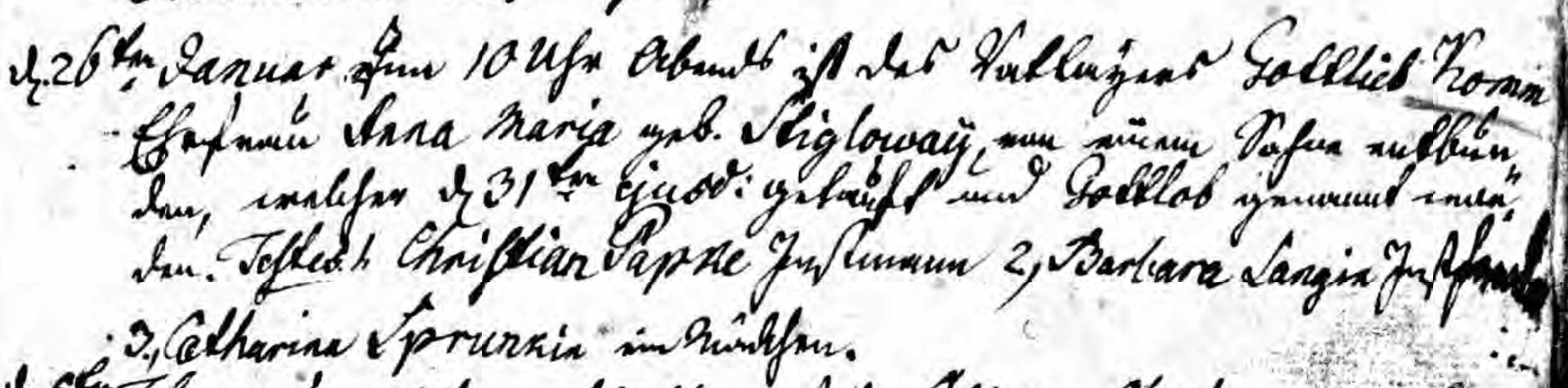 d. 26ten Januar um 10 Uhr Abends ist des Rathayers Gottlieb Komm
Ehefrau Anna Maria geb. Stigloway, von einem Sohne entbun-
den, welcher d 31ten ejusd: getauft und Gottlob genannt wor-
den. Testes 1. Christian Papke Instmann 2, Barbara Langin Instfrau
3., Catharina Sprunkin ein Mädchen.